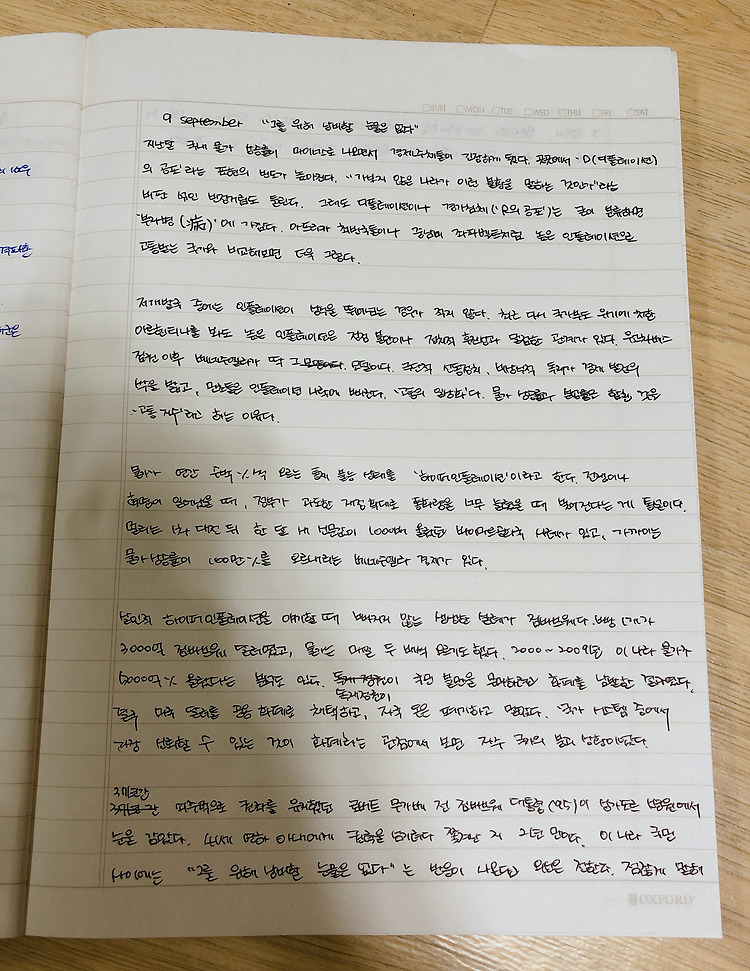 SUN MON TUE WED THU FRI SAT
9 september "그를 위해 낭비할 눈물은 없다"
지난달 국내 물가 상승률이 마이너스로 나오면서 경제주체들이 긴장하게 됐다. 곳곳에서 'D(디플레이션)
의 공포'라는 표현의 빈도가 높아졌다. "가보지 않은 나라가 이런 불황을 말하는 것인가"라는
비판 섞인 반장거림도 들린다. 그래도 디플레이션이나 경기침체('R의 공포')는 굳이 분류하면
'부자병(病)'에 가깝다. 아프리카 최빈국들이나 중남미 좌파벨트처럼 높은 인플레이션으로
고통받는 국가와 비교해보면 더욱 그렇다.
저개발국 중에는 인플레이션이 상상을 뛰어넘는 경우가 적지 않다. 최근 다시 국가부도 위기에 처한
아르헨티나를 봐도 높은 인플레이션은 정정 불안이나 정치적 혼란과 밀접한 관계가 있다. 우고차베스
집권 이후 베네수엘라가 딱 그 모델이다. 극단적 선동정치, 반상식적 독재가 경제 발전의
싹을 밟고, 민초들은 인플레이션 나락에 빠뜨린다. '고통의 일상화'다. 물가 상승률과 실업률을 합친 것을
'고통 지수'라고 하는 이유다.
물가가 연간 수백 %씩 오르는 통제 불능 상태를 '하이퍼인플레이션'이라고 한다. 전쟁이나
혁명이 일어났을 때, 정부가 과도한 재정 확대로 통화량을 너무 늘렸을 때 벌어진다는 게 통설이다.
멀리는 1차 대전 뒤 한 달 새 신문값이 100배 올랐던 바이마르공화국 사례가 있고, 가까이는
물가상승률이 100만 %를 오르내리는 베네수엘라 경제가 있다.
살인적 하이퍼인플레이션을 얘기할 때 빠지지 않는 생생한 실례가 짐바브웨다. 빵 1개가
3000억 짐바브웨 달러였고, 물가는 매일 두 배씩 오르기도 했다. 2000~2009년 이 나라 물가가
5000억 % 올랐다는 분석도 있다. 독재정권이 국민 불만을 무마하려고 화폐를 남발한 결과였다.
독재정권이
결국 미국 달러를 공용 화폐로 채택하고, 자국 돈은 폐기하고 말았다. '국가 시스템 중에서
가장 신뢰할 수 있는 것이 화폐'라는 관점에서 보면 자주 국가의 불과 상황이었다.
37년간
37년간 떠주먹으로 권좌를 유지했던 로버트 무가베 전 짐바브웨 대통령(95)이 싱가포르 병원에서
눈을 감았다. 41세 연하 아내에게 권력을 넘기려다 쫓겨난 지 2년 만이다. 이 나라 국민
사이에는 "그를 위해 낭비할 눈물은 없다"는 반응이 나온다고 외신은 전한다. 점잖게 말해
OXFORD